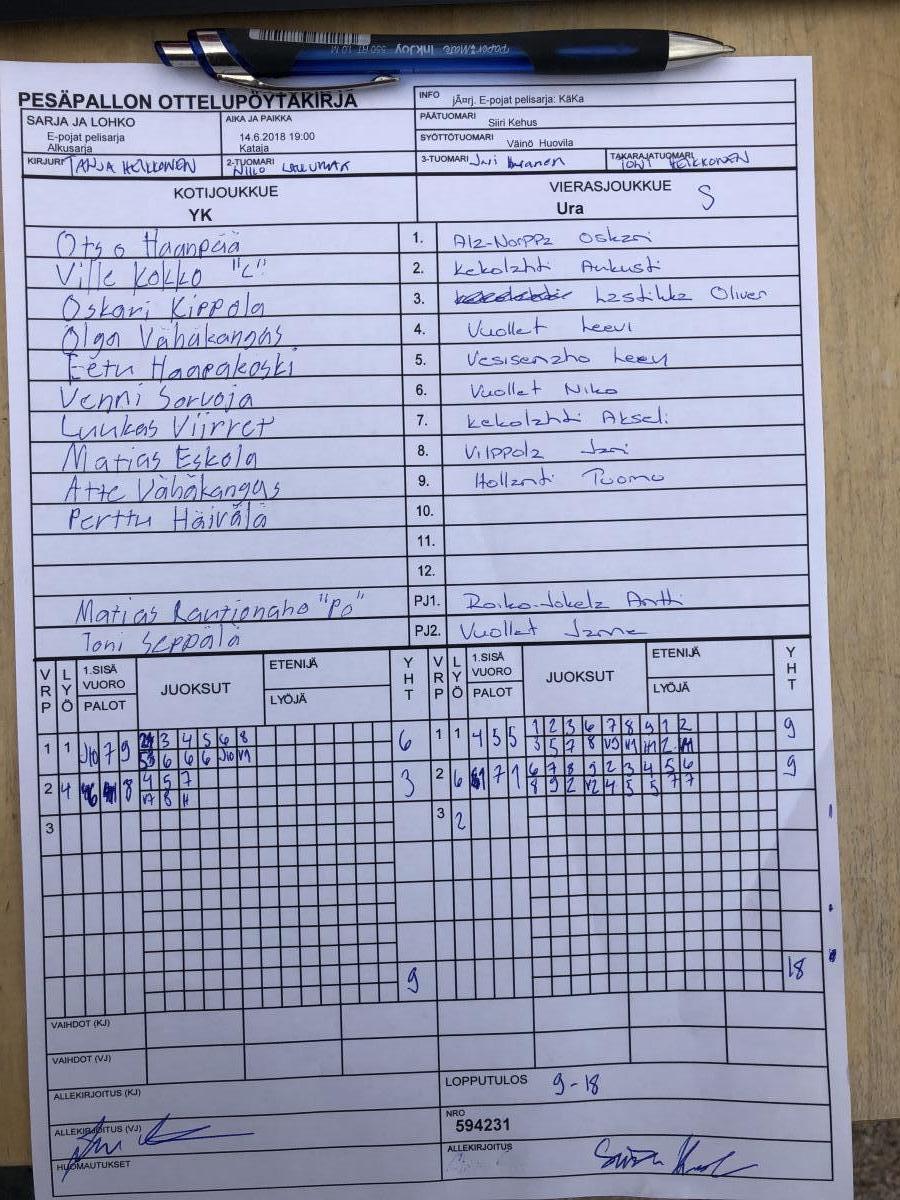 paper mate InkJoy 550 RT 1.0 M
PESÄPALLON OTTELUPÖYTÄKIRJA
INFO jÃ¤rj. E-pojat pelisarja: KäKa
SARJA JA LOHKO
E-pojat pelisarja
Alkusarja
AIKA JA PAIKKA
14.6.2018 19:00
Kataja
PÄÄTUOMARI Siiri Kehus
SYÖTTÖTUOMARI Väinö Huovila
KIRJURI TANJA HEIKKONEN
2-TUOMARI
3-TUOMARI Jari
TAKARAJATUOMARI TONI HEIKKONEN
KOTIJOUKKUE
YK
VIERASJOUKKUE S
Ura
Otso Haanpää 1. Ala-Norppa Oskari
Ville Kokko "L" 2. Kekolahti Aukusti
Oskari Kippola 3. Lastikka Oliver
Olga Vähäkangas 4. Vuollet Leevi
Eetu Haapakoski 5. Vesisenaho Leevi
Venni Sorvoja 6. Vuollet Niko
Luukas Viirret 7. Kekolahti Akseli
Matias Eskola 8. Vilppola Jani
Atte Vähäkangas 9. Hollanti Tuomo
Perttu Häivälä 10.
11.
12.
Matias Rautionaho "PO" PJ1. Roiko-Jokela Antti
Toni Seppälä PJ2. Vuollet Janne
VRP LYÖ 1.SISÄ VUORO PALOT JUOKSUT ETENIJÄ LYÖJÄ YHT VRP LYÖ 1.SISÄ VUORO PALOT JUOKSUT ETENIJÄ LYÖJÄ YHT
1 1 J10 7 9 3 4 5 6 8 6 1 1 4 5 5 1 2 3 6 7 8 9 1 2 9
6 6 6 J10 V1 3 5 7 8 V3 V1 2
2 4 8 4 5 7 3 2 6 7 1 6 7 8 9 2 3 4 5 6 9
V7 8 8 9 2 V2 4 5 5 7 7
3 3 2
9 18
VAIHDOT (KJ)
VAIHDOT (VJ)
ALLEKIRJOITUS (KJ)
LOPPUTULOS 9-18
ALLEKIRJOITUS (VJ)
NRO
594231
HUOMAUTUKSET
ALLEKIRJOITUS